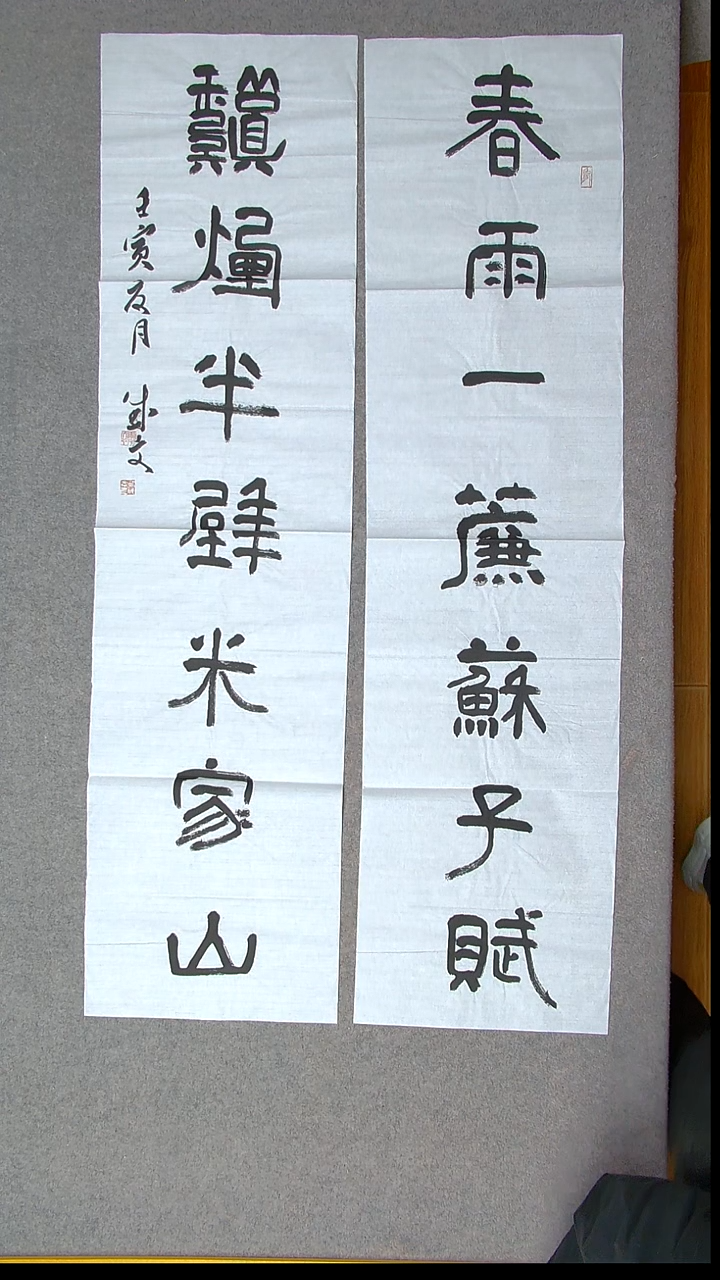 春雨一簾蘇子賦
半壁米家山
壬寅夏月 成文